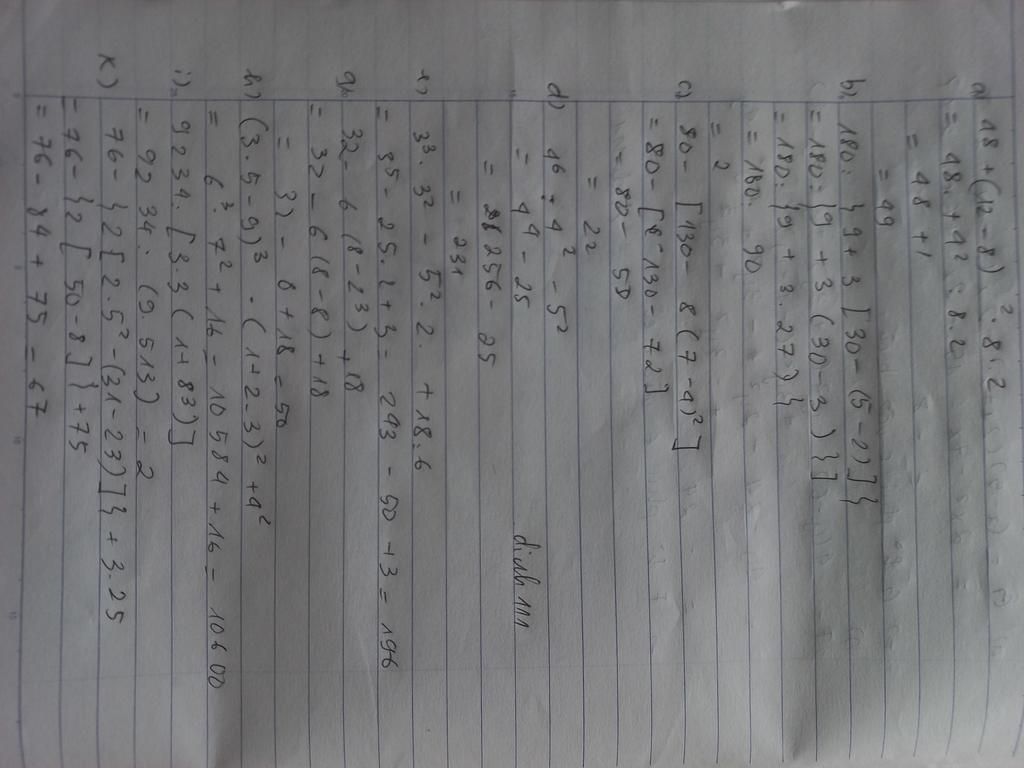 a) 48 + (12 - 8)² : 8 . 2
= 48 + 4² : 8.2
= 48 + 1
= 49
b) 180 : { 9 + 3 [ 30 - (5 - 2) ] {
= 180 : {9 + 3 (30 - 3) } ]
= 180 : {9 + 3 . 27 } {
= 180 : 90
= 2
c) 80 - [130 - 8 (7 - 4)²]
= 80 - [ 130 - 72 ]
= 80 - 58
= 22
d) 4⁶ : 4² - 5²
= 4⁴ - 25
= 256 - 25
= 231
dinh 111
e) 3³ . 3² - 5² . 2 + 18 : 6
= 3⁵ - 25 . 2 + 3 = 243 - 50 + 3 = 196
g) 32 - 6 (8 - 2³) + 18
= 32 - 6 (8 - 8) + 18
= 32 - 0 + 18 = 50
h) (3 . 5 - 9)³ . (1 + 2 . 3)² + 4²
= 6³ . 7² + 16 = 10 584 + 16 = 10600
i) 9234 : [3 . 3 (1 + 8³)]
= 92 34 : (9 . 513) = 2
k) 76 - { 2 [ 2 . 5² - (31 - 23)] } + 3 . 25
= 76 - { 2 [ 50 - 8 ] } + 75
= 76 - 84 + 75 = 67